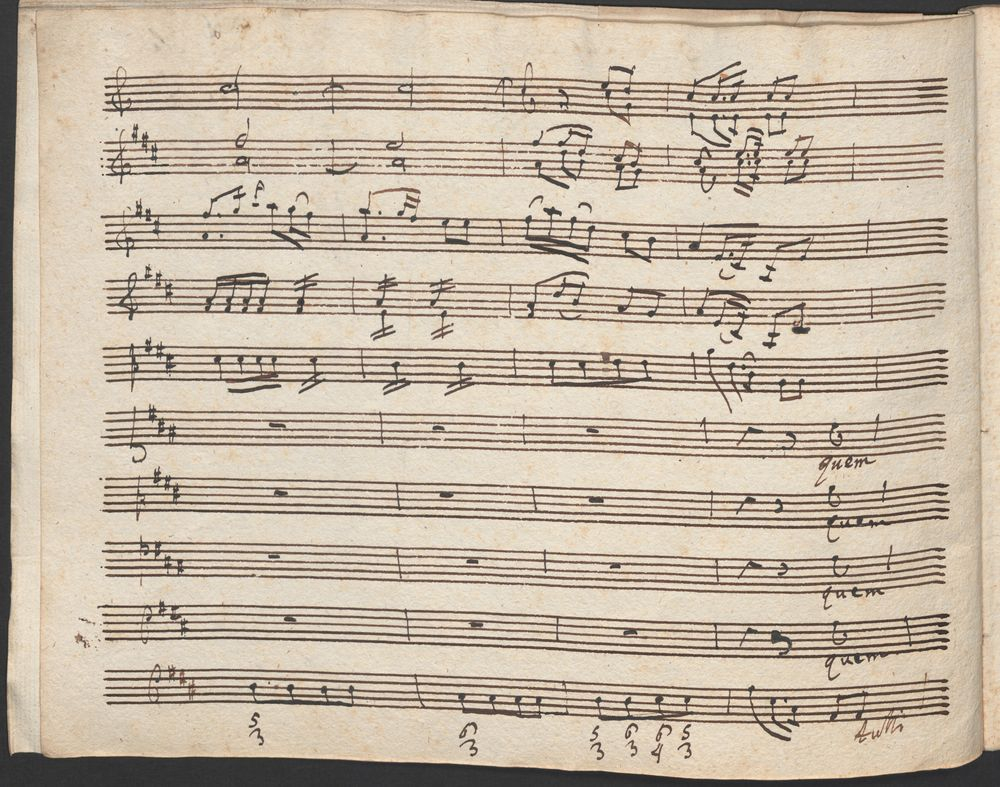 p
quem
quem
quem
quem
Tutti
5 6 5 6 6 5
3 3 3 3 4 3